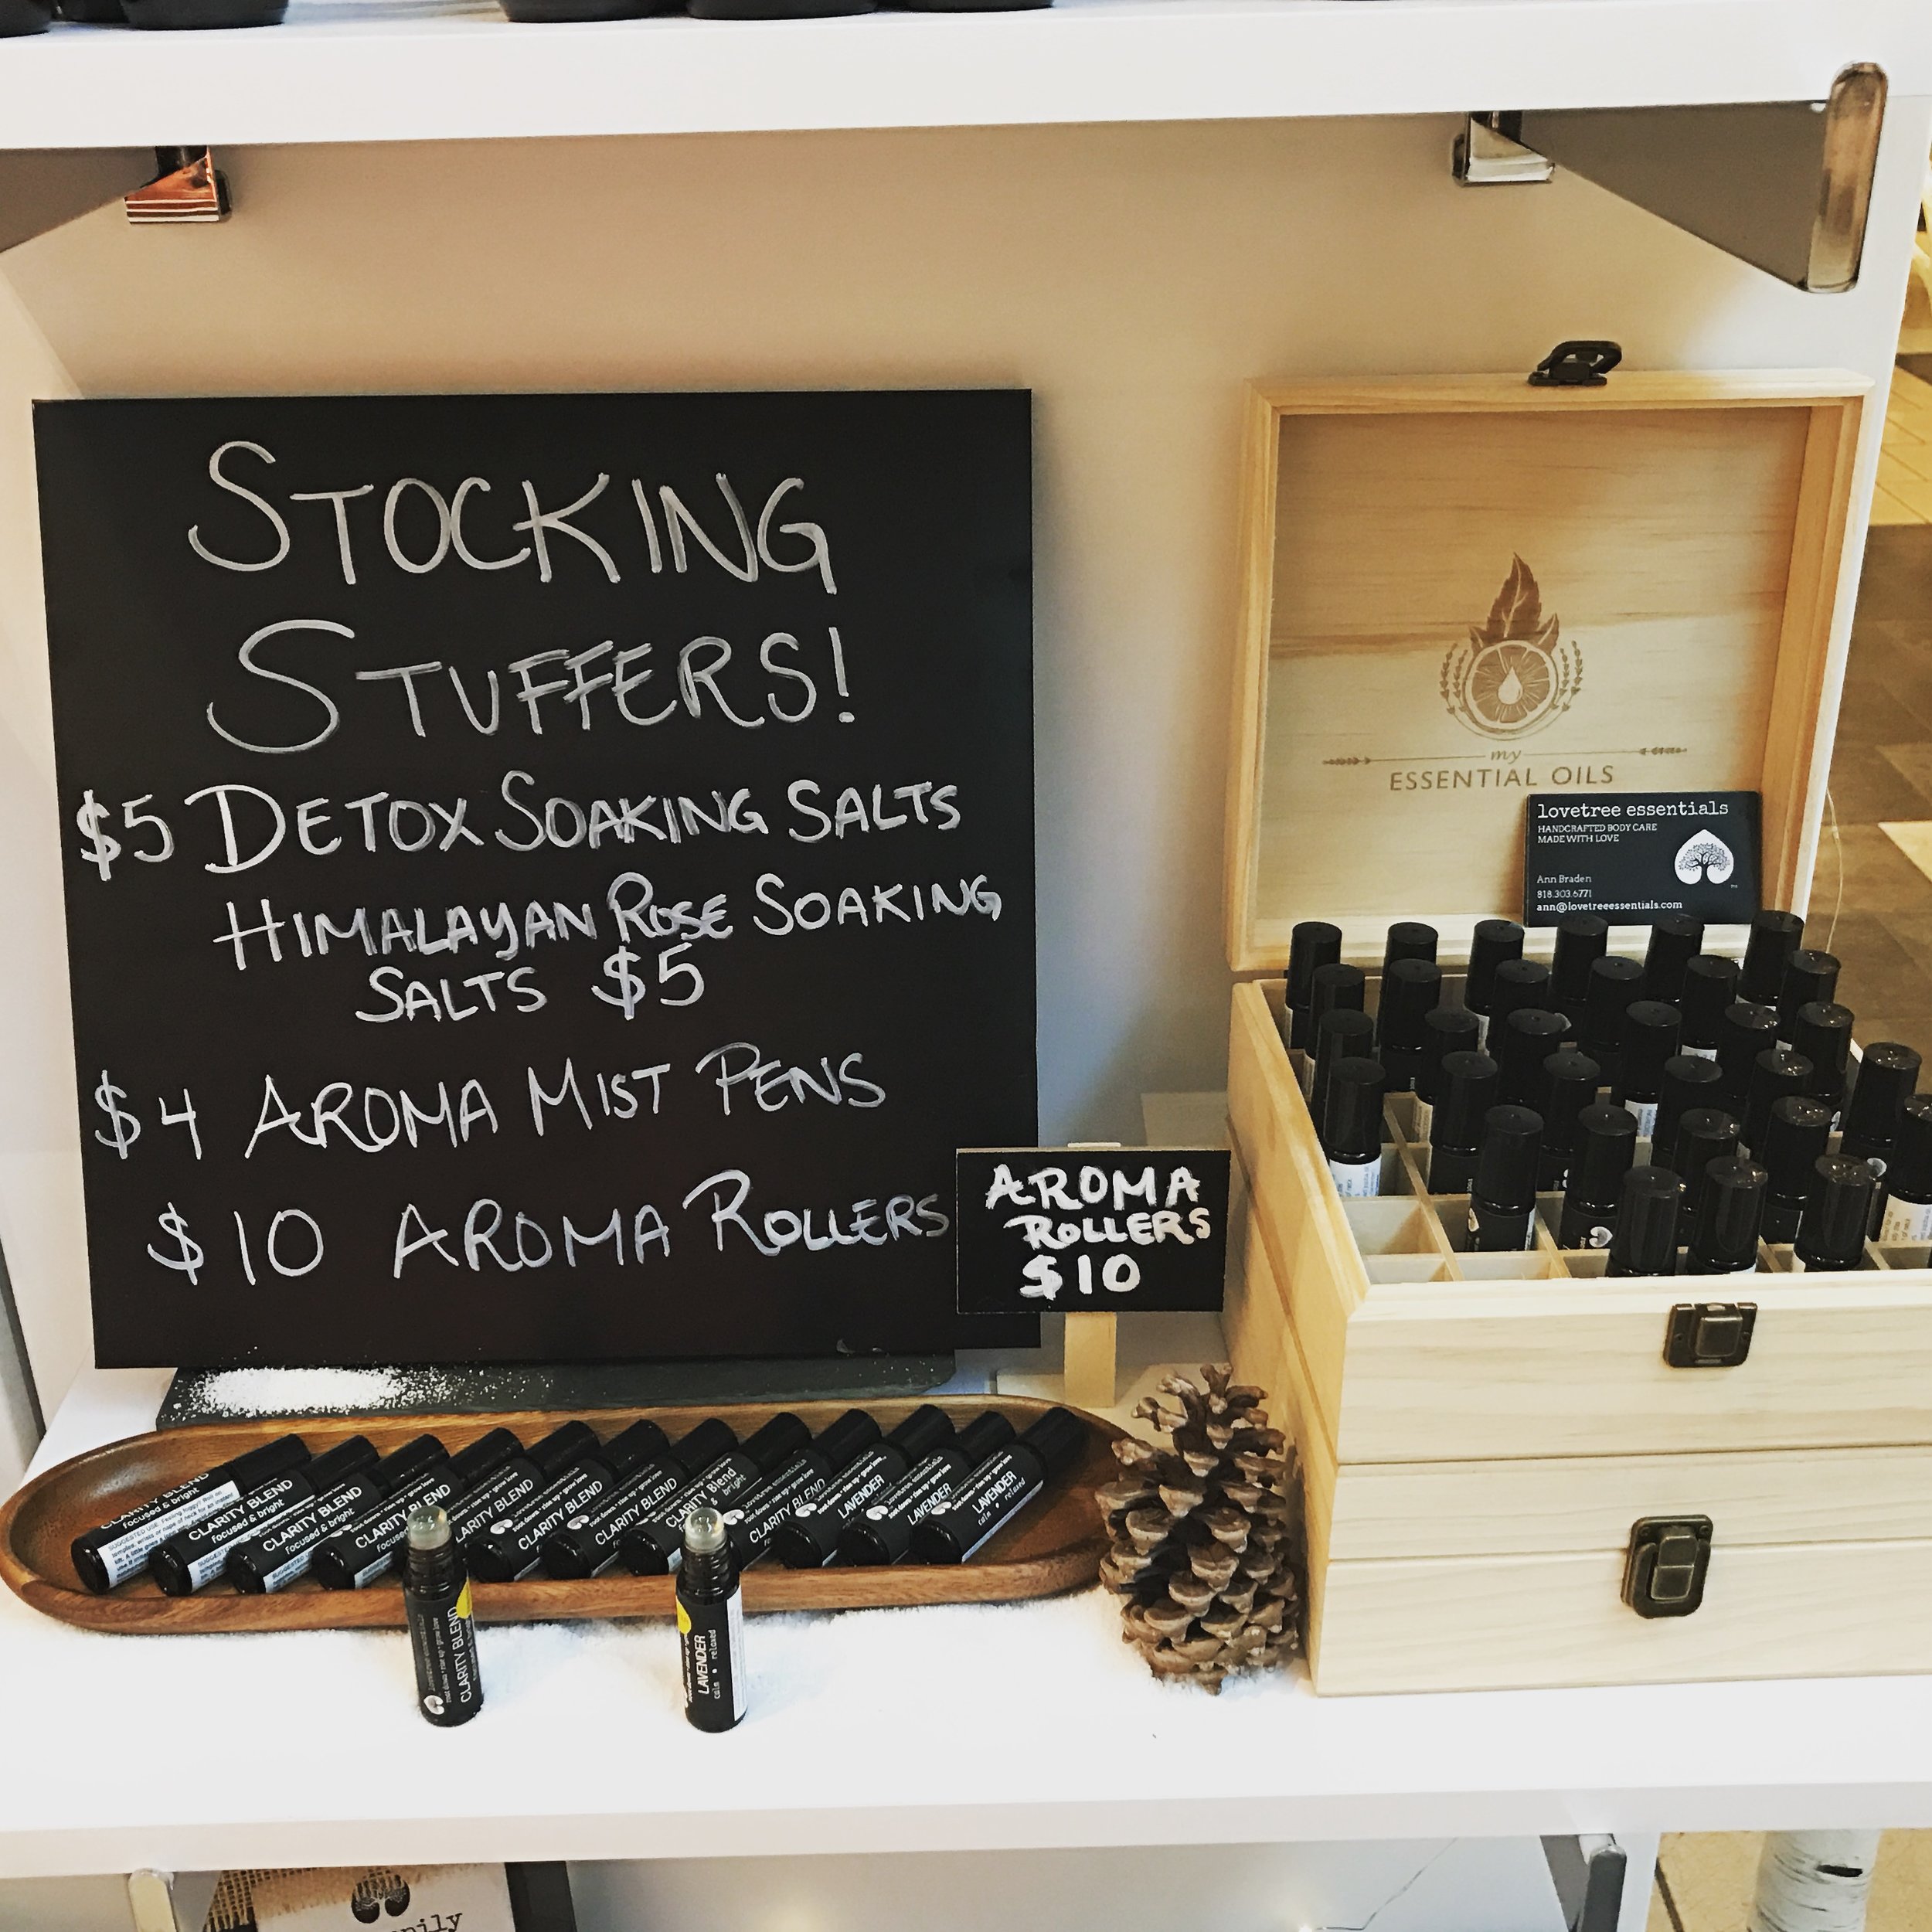 STOCKING
STUFFERS!
$5 DETOX SOAKING SALTS
HIMALAYAN ROSE SOAKING
SALTS $5
$4 AROMA MIST PENS
$10 AROMA ROLLERS
AROMA
ROLLERS
$10
my
ESSENTIAL OILS
lovetree essentials
HANDCRAFTED BODY CARE
MADE WITH LOVE
Ann Braden
818.303.6771
ann@lovetreeessentials.com
CLARITY BLEND
focused & bright
CLARITY BLEND
focused & bright
CLARITY BLEND
focused & bright
CLARITY BLEND
CLARITY BLEND
CLARITY BLEND
CLARITY BLEND
CLARITY BLEND
LAVENDER
LAVENDER
LAVENDER
calm • relaxed
CLARITY BLEND
LAVENDER
calm • relaxed